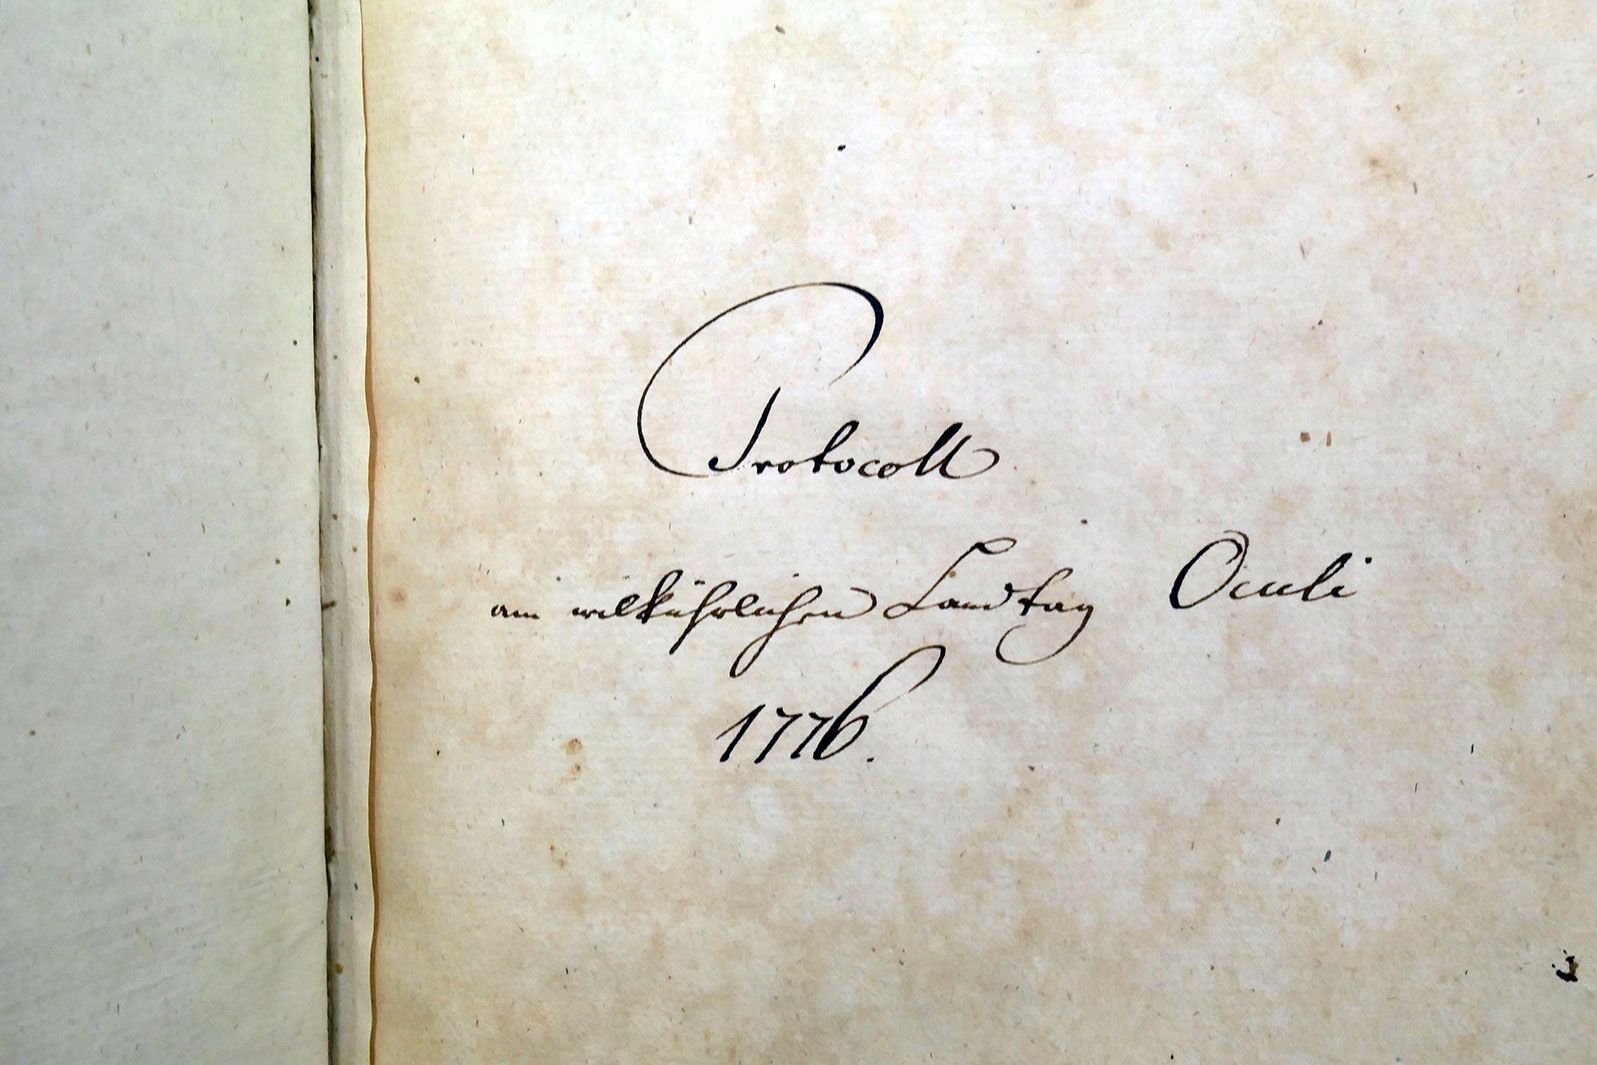 Protocoll
am wilkührlichen Landtag Oculi
1776.